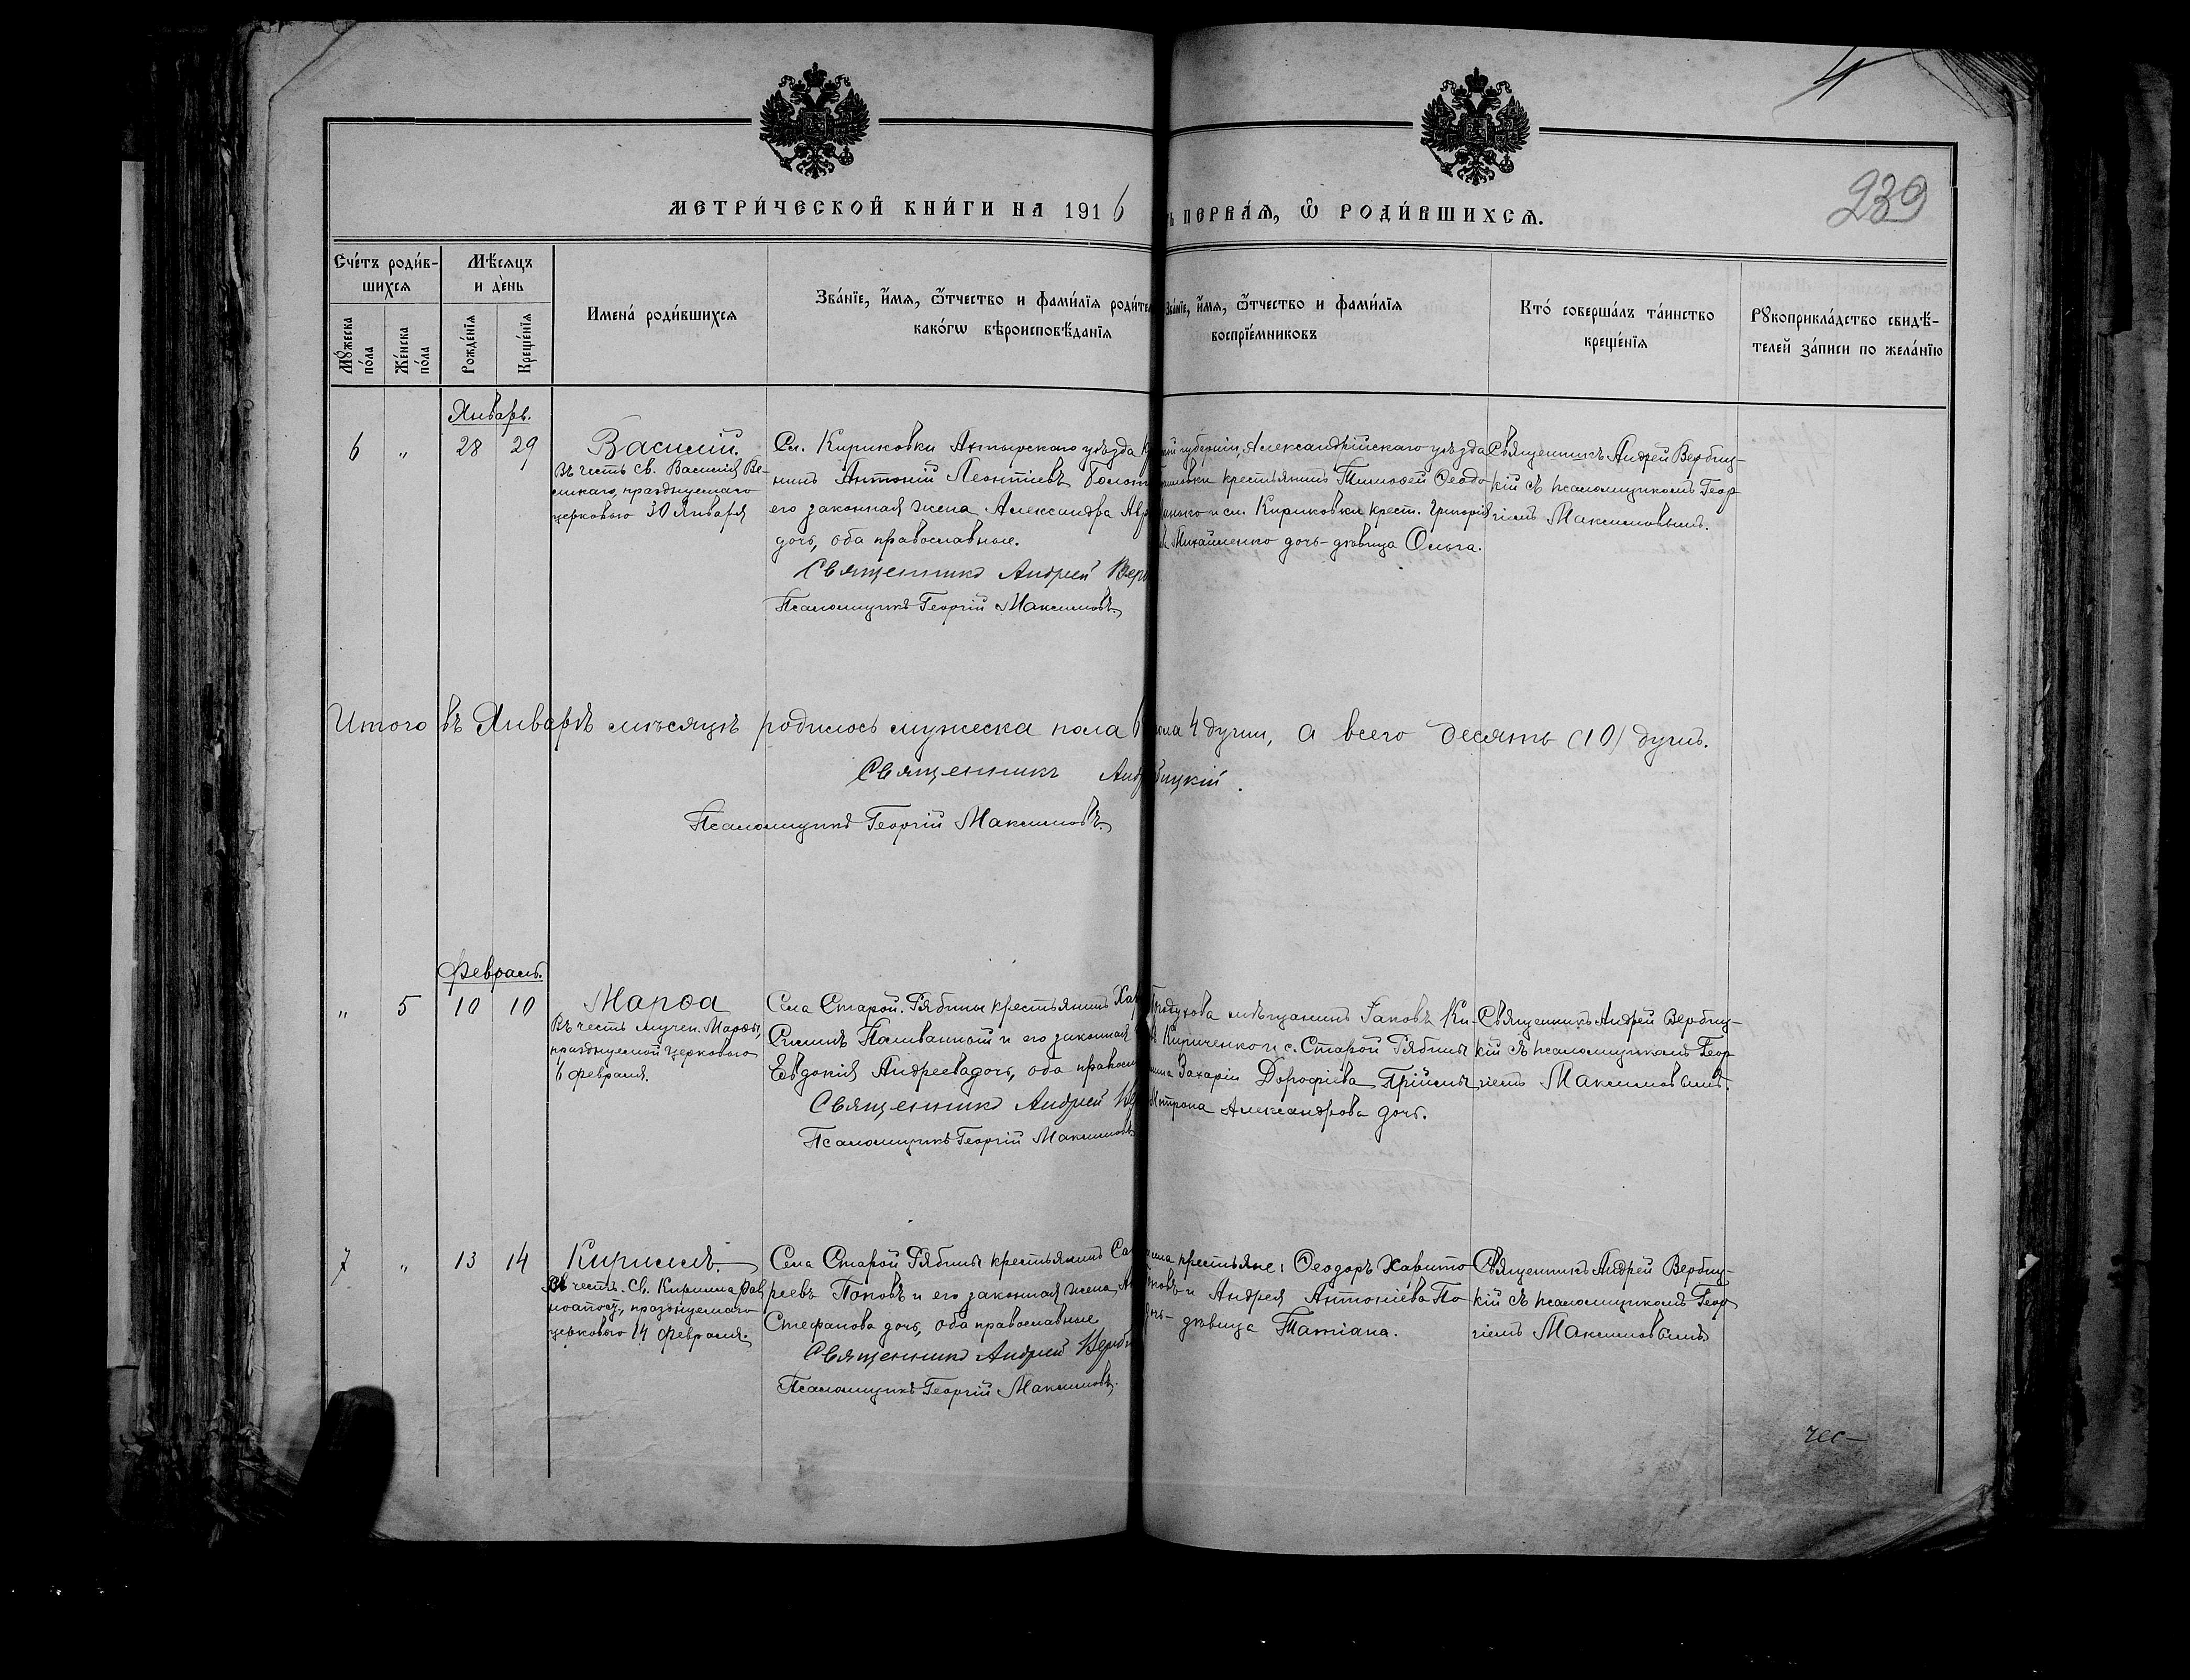 4
239
МЕТРИ́ЧЕСКОЙ КНИ́ГИ НА 1916
ПЕРВА́Я, Ѡ РОДИ́ВШИХСѦ.
Сче́тъ роди́в-
шихсѧ
Мѣ́сѧцъ
и де́нь
Мꙋ́жеска
по́ла
Же́нска
по́ла
Рожде́нїѧ
Креще́нїѧ
Имена́ роди́вшихсѧ
Зва́нїе, и҆́мѧ, ѻ҆́тчество и фами́лїѧ родите
како́гѡ вѣроисповѣ́данїѧ
Зва́нїе, и҆́мѧ, ѻ҆́тчество и фами́лїѧ
воспрїе́мниковъ
Кто́ соверша́лъ та́инство
креще́нїѧ
Рꙋкоприкла́дство свидѣ́-
телей за́писи по жела́нїю
Январь.
6 „ 28 29
Василій.
Въ честь св. Василія Ве-
ликаго, празднуемаго
церковью 30 Января
Сл. Кириковки Ахтырскаго уѣзда
нинъ Антоній Леонтіевъ Болот
его законная жена Александра Авр
дочь, оба православные.
Священникъ Андрей Верб
Псаломщикъ Георгій Максимовъ.
губерніи, Александрійскаго уѣзда
крестьянинъ Тимоѳей Ѳеодо
и сл. Кириковки крест. Григорія
Михайленко дочь-дѣвица Ольга.
Священникъ Андрей Вербиц-
кій съ псаломщикомъ Геор
гіемъ Максимовымъ.
Итого въ Январѣ мѣсяцѣ родилось мужеска пола 6
пола 4 души, а всего десять (10) душъ.
Священникъ Андр
бицкій.
Псаломщикъ Георгій Максимовъ.
Февраль.
„ 5 10 10
Марѳа
Въ честь мучен. Марѳы,
празднуемой церковью
6 февраля.
Села Старой-Рябины крестьянинъ Хар
Силинъ Поливанный и его законная
Евдокія Андреева дочь, оба правосл
Священникъ Андрей Ве
Псаломщикъ Георгій Максимовъ
мѣщанинъ Іаковъ Ки-
Кириченко и с. Старой Рябины
Захаріи Дорофіева Пріймы
Александрова дочь.
Священникъ Андрей Вербиц-
кій съ псаломщикомъ Геор
гіемъ Максимовымъ.
7 „ 13 14
Кириллъ.
Въ честь Св. Кирилла Рав
ноапост., празднуемаго
церковью 14 Февраля.
Села Старой Рябины крестьянинъ
реевъ Поповъ и его законная жена
Стефанова дочь, оба православные
Священникъ Андрей Верби
Псаломщикъ Георгій Максимовъ.
крестьяне: Ѳеодоръ Харито
и Андрея Антоніева По
дѣвица Татіана.
Священникъ Андрей Вербиц-
кій съ псаломщикомъ Геор
гіемъ Максимовымъ